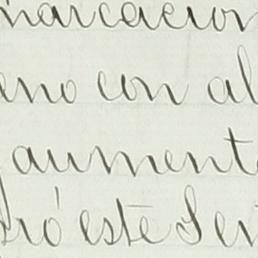 marcacion
eno con al
aument
dró este Ser